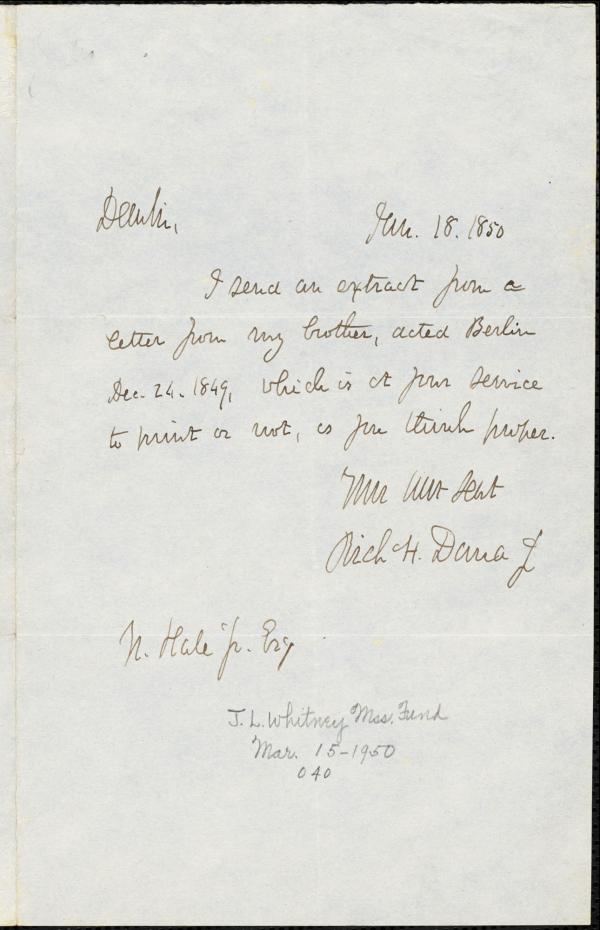 Dear Sir, Jan. 18. 1850
I send an extract from a
letter from my brother, dated Berlin
Dec. 24. 1849, which is at your service
to print or not, as you think proper.
Your obt Servt
Rich H. Dana Jr
N. Hale Jr. Esq
J. L. Whitney Mss. Fund
Mar. 15-1950
040